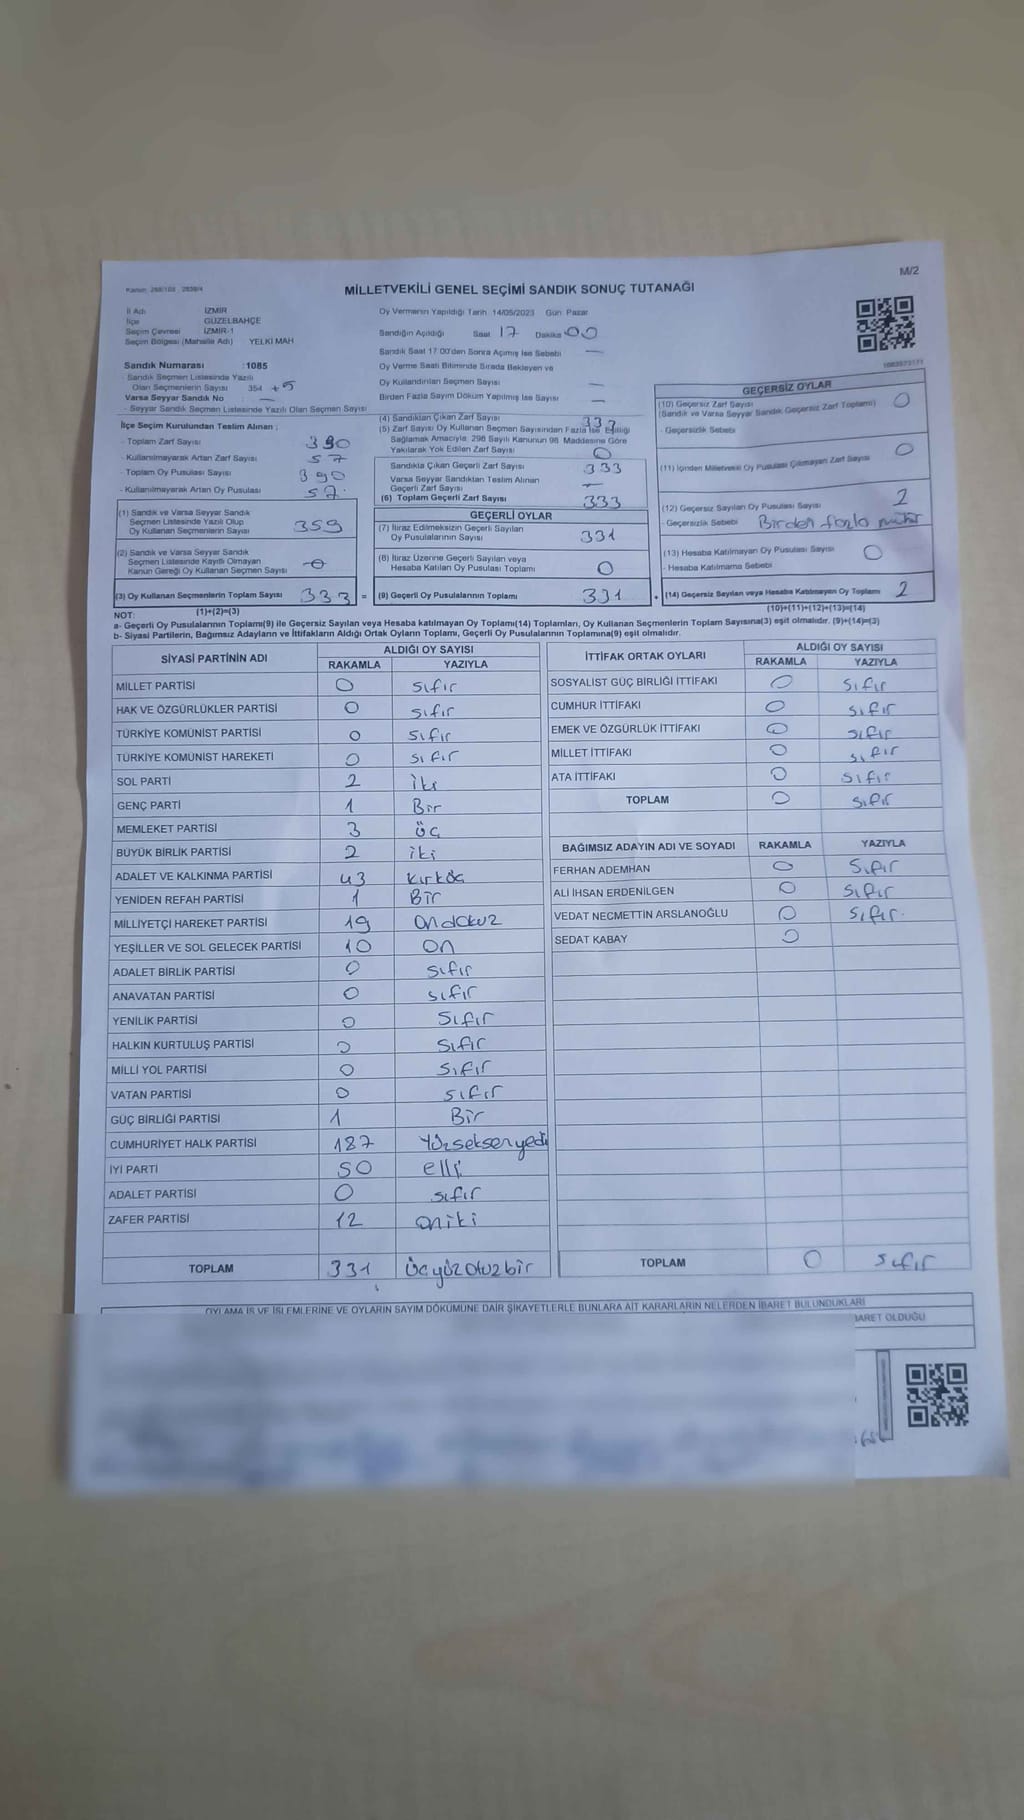 M/2
Kanun: 298/105 , 2839/4
MİLLETVEKİLİ GENEL SEÇİMİ SANDIK SONUÇ TUTANAĞI
İl Adı İZMİR
İlçe GÜZELBAHÇE
Seçim Çevresi İZMİR-1
Seçim Bölgesi (Mahalle Adı) YELKİ MAH
Sandık Numarası :1085
- Sandık Seçmen Listesinde Yazılı
Olan Seçmenlerin Sayısı 354 +5
Varsa Seyyar Sandık No : —
- Seyyar Sandık Seçmen Listesinde Yazılı Olan Seçmen Sayısı
İlçe Seçim Kurulundan Teslim Alınan ;
- Toplam Zarf Sayısı 390
- Kullanılmayarak Artan Zarf Sayısı 57
- Toplam Oy Pusulası Sayısı 390
- Kullanılmayarak Artan Oy Pusulası 57
(1) Sandık ve Varsa Seyyar Sandık
Seçmen Listesinde Yazılı Olup
Oy Kullanan Seçmenlerin Sayısı 359
(2) Sandık ve Varsa Seyyar Sandık
Seçmen Listesinde Kayıtlı Olmayan
Kanun Gereği Oy Kullanan Seçmen Sayısı 0
(3) Oy Kullanan Seçmenlerin Toplam Sayısı 333 =
(1)+(2)=(3)
Oy Vermenin Yapıldığı Tarih 14/05/2023 Gün Pazar
Sandığın Açıldığı Saat 17 Dakika 00
Sandık Saat 17.00'den Sonra Açılmış İse Sebebi —
Oy Verme Saati Bitiminde Sırada Bekleyen ve
Oy Kullandırılan Seçmen Sayısı —
Birden Fazla Sayım Döküm Yapılmış İse Sayısı —
(4) Sandıktan Çıkan Zarf Sayısı 333
(5) Zarf Sayısı Oy Kullanan Seçmen Sayısından Fazla İse Eşitliği
Sağlamak Amacıyla, 298 Sayılı Kanunun 98. Maddesine Göre
Yakılarak Yok Edilen Zarf Sayısı 0
Sandıkta Çıkan Geçerli Zarf Sayısı 333
Varsa Seyyar Sandıktan Teslim Alınan
Geçerli Zarf Sayısı —
(6) Toplam Geçerli Zarf Sayısı 333
GEÇERLİ OYLAR
(7) İtiraz Edilmeksizin Geçerli Sayılan
Oy Pusulalarının Sayısı 331
(8) İtiraz Üzerine Geçerli Sayılan veya
Hesaba Katılan Oy Pusulası Toplamı 0
(9) Geçerli Oy Pusulalarının Toplamı 331 +
GEÇERSİZ OYLAR
(10) Geçersiz Zarf Sayısı 0
(Sandık ve Varsa Seyyar Sandık Geçersiz Zarf Toplamı)
- Geçersizlik Sebebi
(11) İçinden Milletvekili Oy Pusulası Çıkmayan Zarf Sayısı 0
(12) Geçersiz Sayılan Oy Pusulası Sayısı 2
- Geçersizlik Sebebi Birden fazla mühür
(13) Hesaba Katılmayan Oy Pusulası Sayısı 0
- Hesaba Katılmama Sebebi
(14) Geçersiz Sayılan veya Hesaba Katılmayan Oy Toplamı 2
(10)+(11)+(12)+(13)=(14)
NOT:
a- Geçerli Oy Pusulalarının Toplamı(9) ile Geçersiz Sayılan veya Hesaba katılmayan Oy Toplamı(14) Toplamları, Oy Kullanan Seçmenlerin Toplam Sayısına(3) eşit olmalıdır. (9)+(14)=(3)
b- Siyasi Partilerin, Bağımsız Adayların ve İttifakların Aldığı Ortak Oyların Toplamı, Geçerli Oy Pusulalarının Toplamına(9) eşit olmalıdır.
SİYASİ PARTİNİN ADI ALDIĞI OY SAYISI
RAKAMLA YAZIYLA
MİLLET PARTİSİ 0 sıfır
HAK VE ÖZGÜRLÜKLER PARTİSİ 0 sıfır
TÜRKİYE KOMÜNİST PARTİSİ 0 sıfır
TÜRKİYE KOMÜNİST HAREKETİ 0 sıfır
SOL PARTİ 2 iki
GENÇ PARTİ 1 Bir
MEMLEKET PARTİSİ 3 üç
BÜYÜK BİRLİK PARTİSİ 2 iki
ADALET VE KALKINMA PARTİSİ 43 kırküç
YENİDEN REFAH PARTİSİ 1 Bir
MİLLİYETÇİ HAREKET PARTİSİ 19 ondokuz
YEŞİLLER VE SOL GELECEK PARTİSİ 10 on
ADALET BİRLİK PARTİSİ 0 sıfır
ANAVATAN PARTİSİ 0 sıfır
YENİLİK PARTİSİ 0 sıfır
HALKIN KURTULUŞ PARTİSİ 0 sıfır
MİLLİ YOL PARTİSİ 0 sıfır
VATAN PARTİSİ 0 sıfır
GÜÇ BİRLİĞİ PARTİSİ 1 Bir
CUMHURİYET HALK PARTİSİ 187 Yüzseksenyedi
İYİ PARTİ 50 elli
ADALET PARTİSİ 0 sıfır
ZAFER PARTİSİ 12 oniki
TOPLAM 331 üçyüzotuzbir
İTTİFAK ORTAK OYLARI ALDIĞI OY SAYISI
RAKAMLA YAZIYLA
SOSYALİST GÜÇ BİRLİĞİ İTTİFAKI 0 sıfır
CUMHUR İTTİFAKI 0 sıfır
EMEK VE ÖZGÜRLÜK İTTİFAKI 0 sıfır
MİLLET İTTİFAKI 0 sıfır
ATA İTTİFAKI 0 sıfır
TOPLAM 0 sıfır
BAĞIMSIZ ADAYIN ADI VE SOYADI RAKAMLA YAZIYLA
FERHAN ADEMHAN 0 sıfır
ALİ İHSAN ERDENİLGEN 0 sıfır
VEDAT NECMETTİN ARSLANOĞLU 0 sıfır
SEDAT KABAY 0
TOPLAM 0 sıfır
OYLAMA İŞ VE İŞLEMLERİNE VE OYLARIN SAYIM DÖKÜMÜNE DAİR ŞİKAYETLERLE BUNLARA AİT KARARLARIN NELERDEN İBARET BULUNDUKLARI
İBARET OLDUĞU